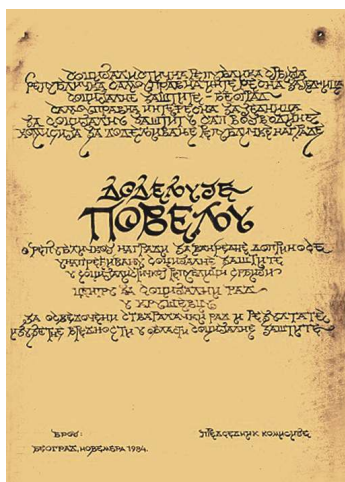 СОЦИЈАЛИСТИЧКА РЕПУБЛИКА СРБИЈА
РЕПУБЛИЧКА САМОУПРАВНА ИНТЕРЕСНА ЗАЈЕДНИЦА
СОЦИЈАЛНЕ ЗАШТИТЕ БЕОГРАД
САМОУПРАВНА ИНТЕРЕСНА ЗАЈЕДНИЦА
ЗА СОЦИЈАЛНУ ЗАШТИТУ САП ВОЈВОДИНЕ
КОМИСИЈА ЗА ДОДЕЉИВАЊЕ РЕПУБЛИЧКЕ НАГРАДЕ
ДОДЕЉУЈЕ
ПОВЕЉУ
О РЕПУБЛИЧКОЈ НАГРАДИ ЗА ВАНРЕДНЕ ДОПРИНОСЕ
УНАПРЕЂИВАЊУ СОЦИЈАЛНЕ ЗАШТИТЕ
У СОЦИЈАЛИСТИЧКОЈ РЕПУБЛИЦИ СРБИЈИ
ЦЕНТРУ ЗА СОЦИЈАЛНИ РАД
У КРУШЕВЦУ
ЗА ОСВЕДОЧЕНИ СТВАРАЛАЧКИ РАД И РЕЗУЛТАТЕ
ИЗУЗЕТНЕ ВРЕДНОСТИ У ОБЛАСТИ СОЦИЈАЛНЕ ЗАШТИТЕ
БРОЈ:
БЕОГРАД, НОВЕМБРА 1984.
ПРЕДСЕДНИК КОМИСИЈЕ